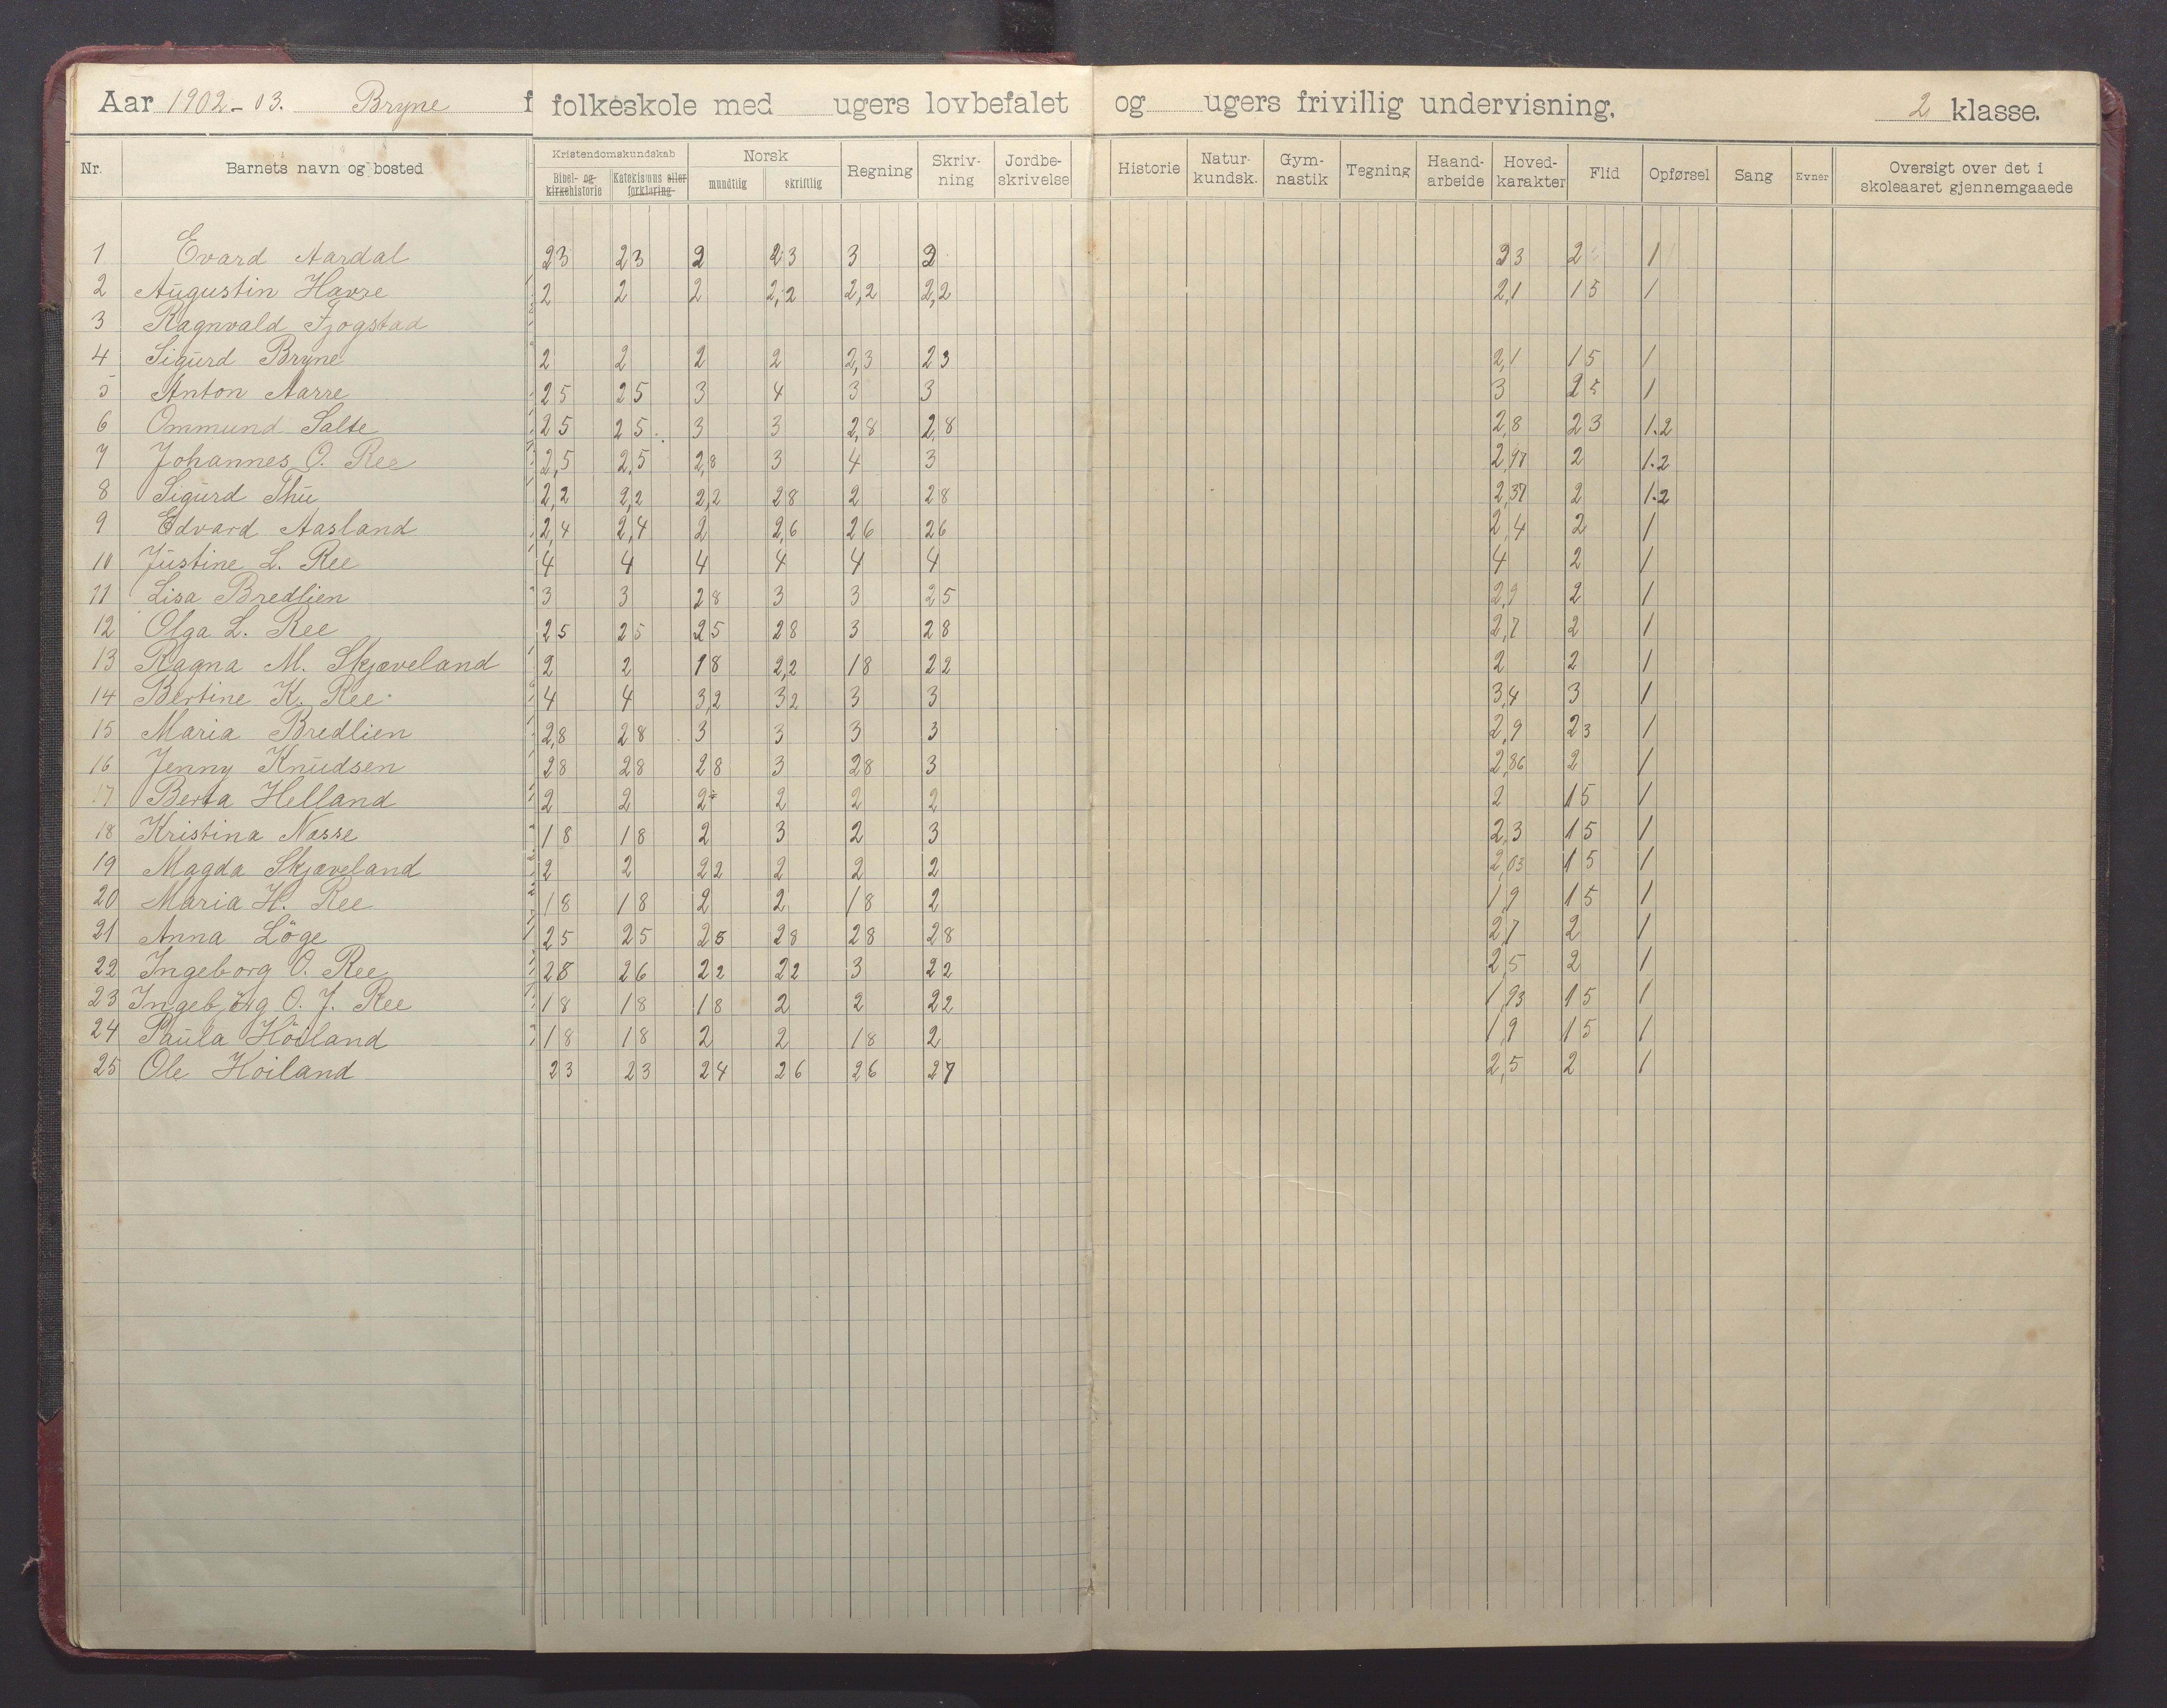 Aar 1902-03. Bryne folkeskole med ugers lovbefalet og ugers frivillig undervisning. 2 klasse.
Nr. Barnets navn og bosted Kristendomskundskab Norsk Regning Skriv-ning Jordbe-skrivelse Historie Natur-kundsk. Gym-nastik Tegning Haand-arbeide Hoved-karakter Flid Opførsel Sang Evner Oversigt over det i skoleaaret gjennemgaaede
Bibel- og kirkehistorie Katekismus eller forklaring mundtlig skriftlig
1 Evard Aardal 23 23 2 23 3 2 23 2 1
2 Augustin Havre 2 2 2 2,2 2,2 2,2 2,1 15 1
3 Ragnvald Fjogstad
4 Sigurd Bryne 2 2 2 2 2,3 23 2,1 15 1
5 Anton Aarre 25 25 3 4 3 3 3 25 1
6 Ommund Salte 25 25 3 3 2,8 2,8 2,8 23 1.2
7 Johannes O. Ree 2,5 2,5 2,8 3 4 3 2,97 2 1.2
8 Sigurd Thu 2,2 2,2 2,2 28 2 28 2,37 2 1.2
9 Edvard Aasland 2,4 2,4 2 2,6 26 26 2,4 2 1
10 Justine L. Ree 4 4 4 4 4 4 4 2 1
11 Lisa Bredlien 3 3 28 3 3 25 2,9 2 1
12 Olga L. Ree 25 25 25 28 3 28 2,7 2 1
13 Ragna M. Skjæveland 2 2 18 2,2 18 22 2 2 1
14 Bertine K. Ree 4 4 3,2 32 3 3 3,4 3 1
15 Maria Bredlien 2,8 28 3 3 3 3 2,9 23 1
16 Jenny Knudsen 28 28 28 3 28 3 2,86 2 1
17 Berta Helland 2 2 2 2 2 2 2 15 1
18 Kristina Næsse 18 18 2 3 2 3 2,3 15 1
19 Magda Skjæveland 2 2 22 2 2 2 2,03 15 1
20 Maria H. Ree 18 18 2 2 18 2 1,9 15 1
21 Anna Löge 25 25 25 28 28 28 2,7 2 1
22 Ingeborg O. Ree 28 26 22 22 3 22 2,5 2 1
23 Ingebjørg O. J. Ree 18 18 18 2 2 22 1,93 15 1
24 Paula Höiland 18 18 2 2 18 2 1,9 15 1
25 Ole Hoiland 23 23 24 26 26 27 2,5 2 1